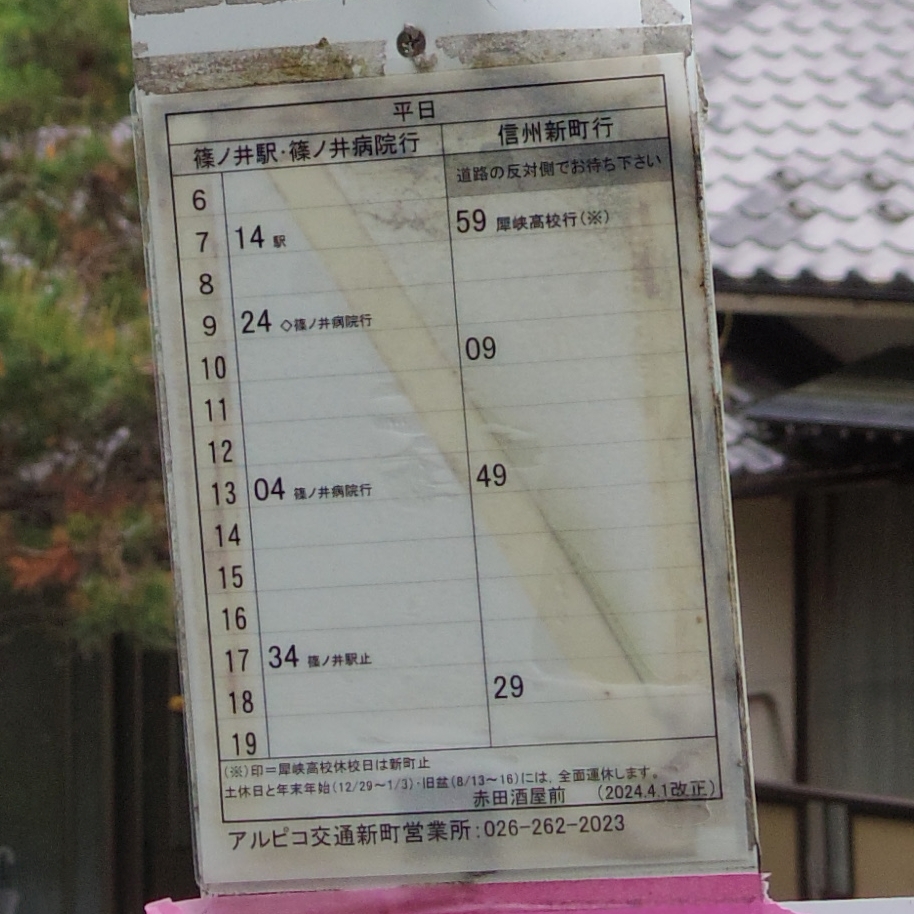 平日
篠ノ井駅・篠ノ井病院行 信州新町行
道路の反対側でお待ち下さい
6
7 14 駅 59 犀峡高校行(※)
8
9 24 ◇篠ノ井病院行
10 09
11
12
13 04 篠ノ井病院行 49
14
15
16
17 34 篠ノ井駅止
18 29
19
(※)印=犀峡高校休校日は新町止
土休日と年末年始(12/29~1/3)・旧盆(8/13~16)には、全面運休します。
赤田酒屋前 (2024.4.1改正)
アルピコ交通新町営業所:026-262-2023